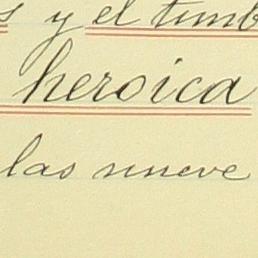 y el timb
heroica
las nueve